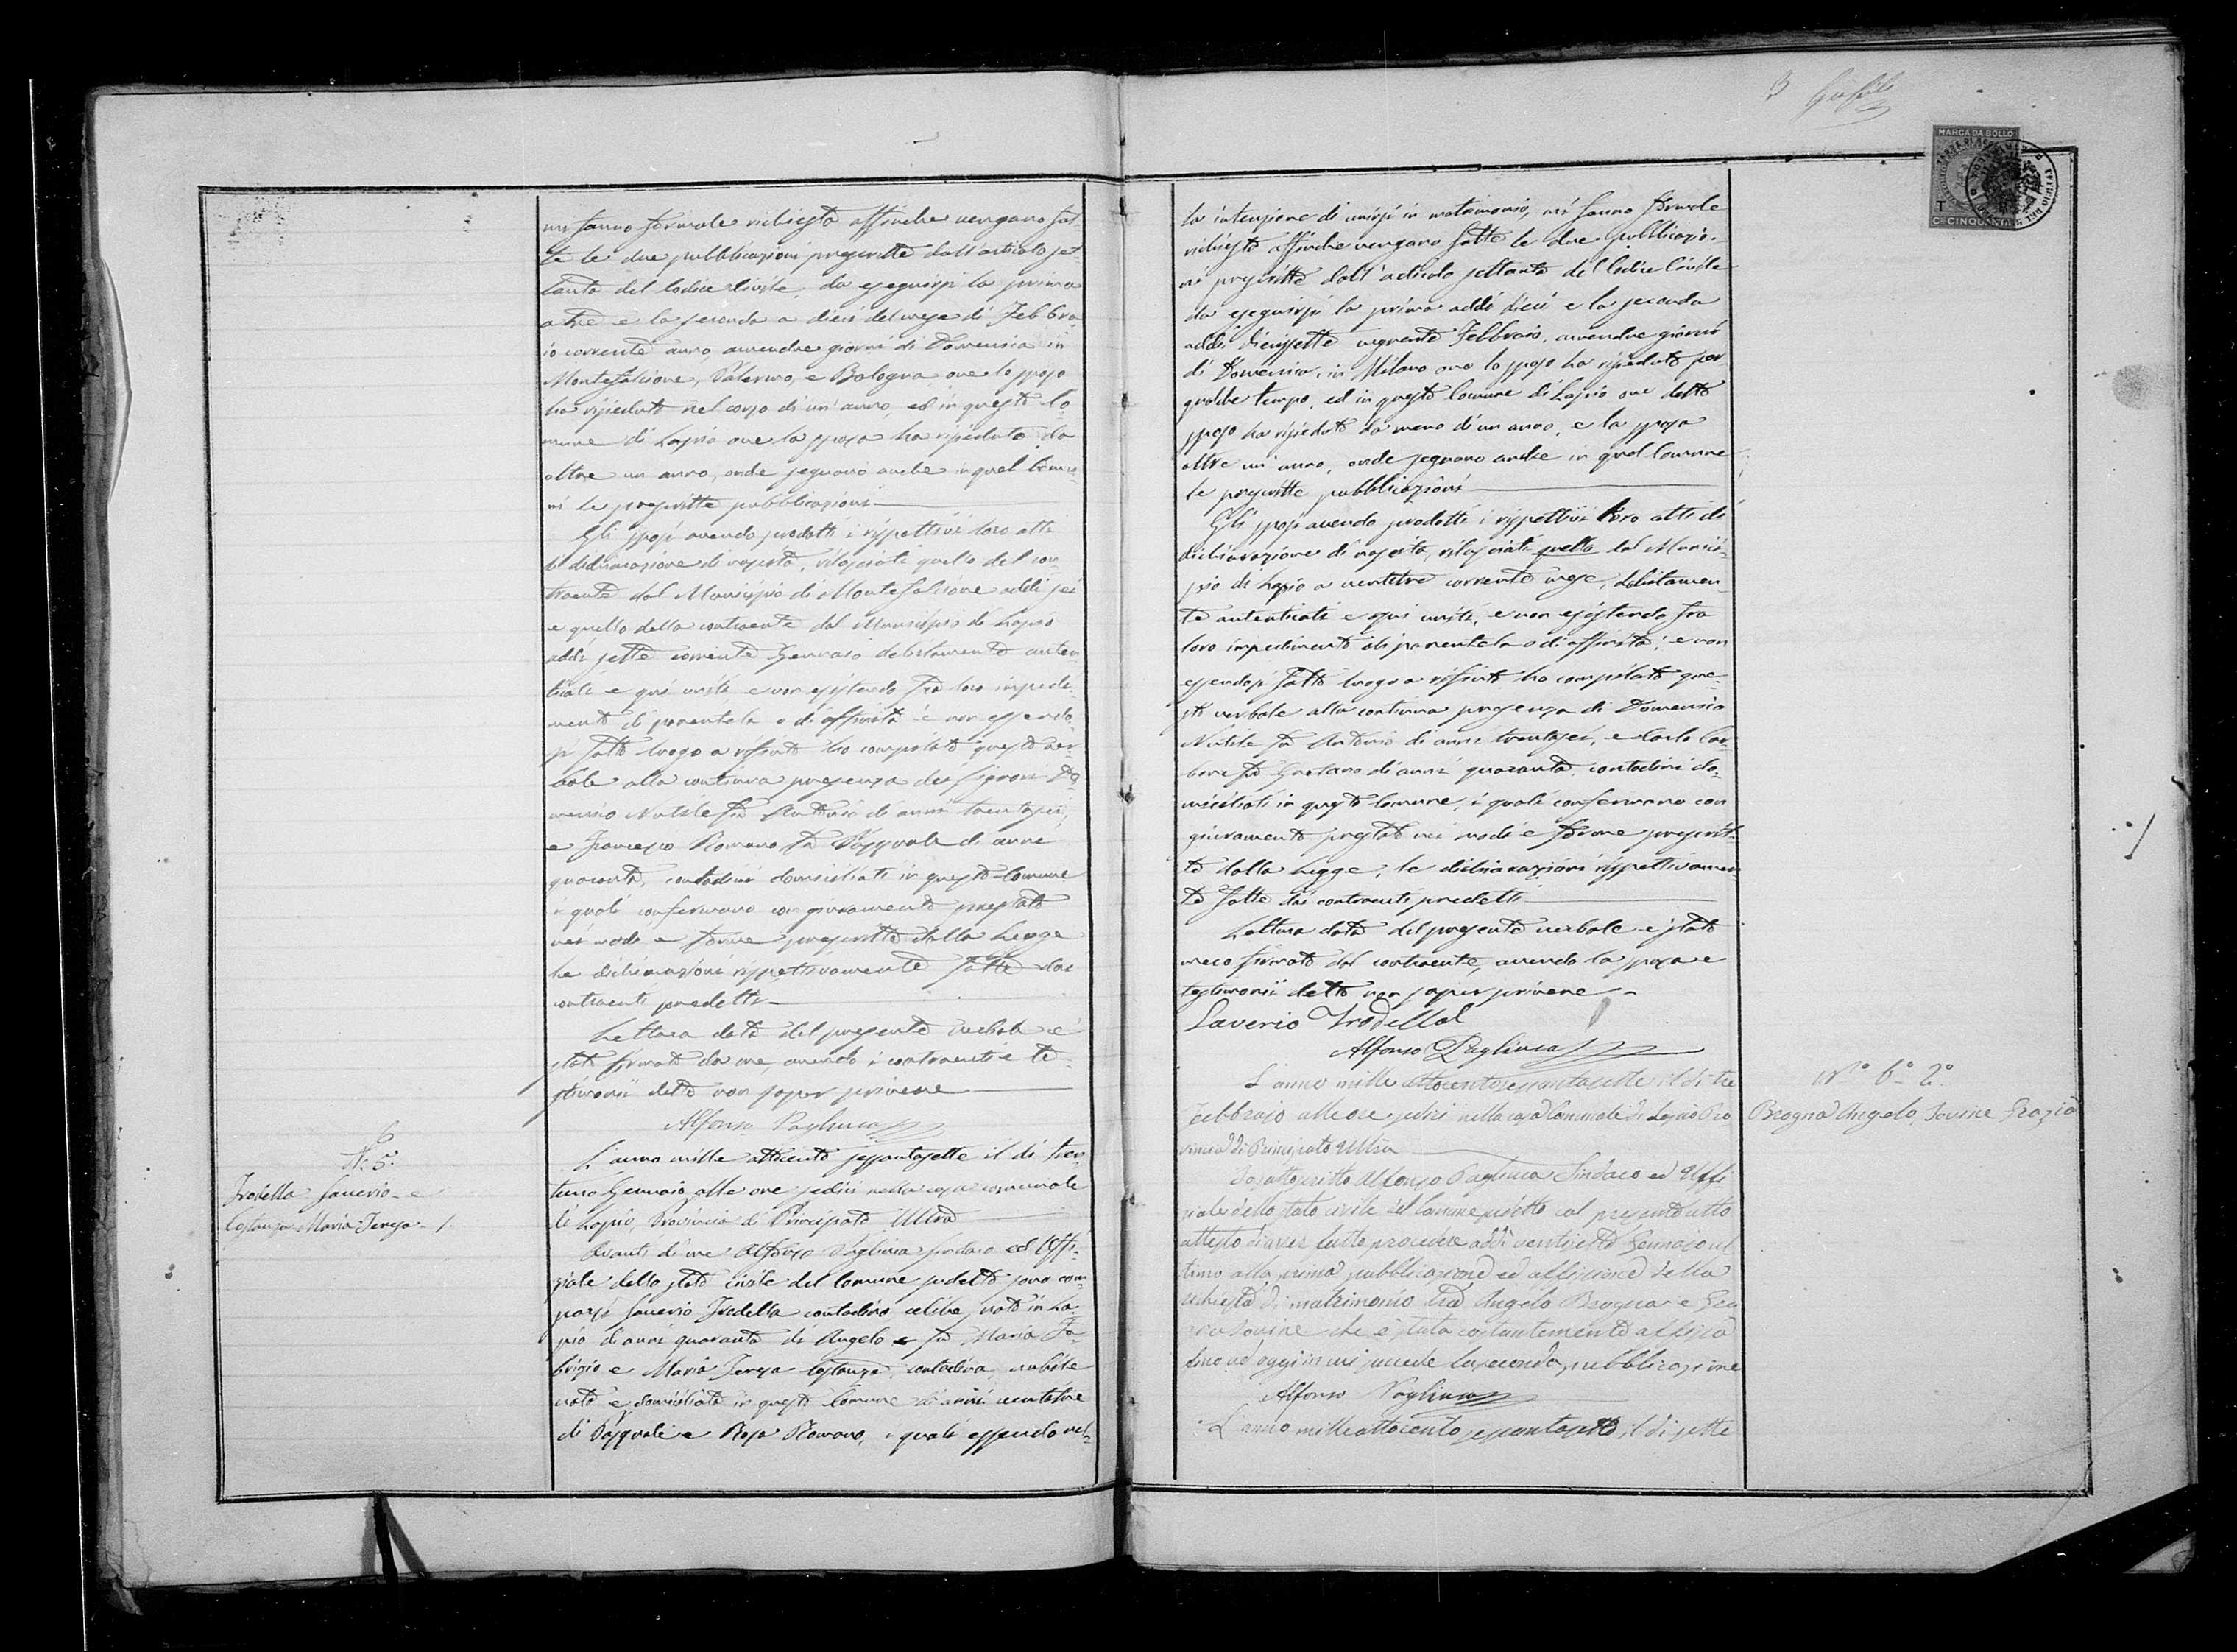 mi fanno formale richiesta affinché vengano fat
te le due pubblicazioni prescritte dall'articolo set
tanta del Codice Civile, da eseguirsi la prima
a tre e la seconda a dieci del mese di Febbra
io corrente anno, amendue giorni di Domenica in
Montefalcione, Palermo, e Bologna ove lo sposo
ha risieduto nel corso di un'anno, ed in questo Co
mune di Lapio ove la sposa ha risieduto da
oltre un anno, onde seguano anche in quei Comu
ni le prescritte pubblicazioni
Gli sposi avendo prodotti i rispettivi loro atti
di dichiarazione di nascita, rilasciati quello del con
traente dal Municipio di Montefalcione addì sei
e quello della contraente dal Municipio di Lapio
addi sette corrente Gennaio debitamente auten
ticati e qui uniti e non esistendo fra loro impedi
mento di parentela o di affinità e non essendo
si fatto luogo a rifiuto ho compilato questo ver
bale alla continua presenza dei signori Do
menico Nutile fu Antonio di anni trentasei,
e Francesco Romano fu Pasquale di anni
quaranta, contadini domiciliati in questo Comune
i quali confermano con giuramento prestato
nei modi e forme prescritte dalla Legge
le dichiarazioni rispettivamente fatte dai
contraenti predetti
Lettura data del presente verbale è
stato firmato da me, avendo i contraenti e te
stimonii detto non saper scrivere
Alfonso Pagliuca
6
N. 5.
Irodella Saverio e
Costanza Maria Teresa 1.
L'anno mille ottocento sessantasette il dì tren
tuno Gennaio alle ore sedici nella casa comunale
di Lapio Provincia di Principato Ultra
Avanti di me Alfonso Pagliuca sindaco ed Uffi
ziale dello stato civile del Comune sudetto sono com
parsi Saverio Irodella contadino celibe, nato in La
pio di anni quaranta di Angelo e fu Maria Fa
brizio e Maria Teresa Costanza, contadina, nubile
nata e domiciliata in questo Comune di anni ventitre
di Pasquale e Rosa Romano, i quali essendo nel
la intenzione di unirsi in matrimonio, mi fanno formale
richiesta affinché vengano fatte le due pubblicazio
ni prescritte dall'articolo settanta del Codice Civile
da eseguirsi la prima addì dieci e la seconda
addì diciassette vegnente Febbraio, amendue giorni
di Domenica, in Milano ove lo sposo ha risieduto per
qualche tempo, ed in questo Comune di Lapio ove detto
sposo ha risieduto da meno di un anno, e la sposa
oltre un'anno, onde seguano anche in quel Comune
le prescritte pubblicazioni
Gli sposi avendo prodotti i rispettivi loro atti di
dichiarazione di nascita, rilasciati quello dal Munici
pio di Lapio a ventitre corrente mese, debitamen
te autenticati e qui uniti, e non esistendo fra
loro impedimento di parentela o di affinità; e non
essendosi fatto luogo a rifiuto ho compilato que
sti verbale alla continua presenza di Domenico
Nutile fu Antonio di anni trentasei, e Carlo Car
bone fu Gaetano di anni quaranta, contadini do
miciliati in questo Comune, i quali confermano con
giuramento prestato nei modi e forme prescrit
te dalla Legge, le dichiarazioni rispettivamen
te fatte dai contraenti predetti
Lettura data del presente verbale è stato
meco firmato dal contraente, avendo la sposa e
testimonii detto non saper scrivere
Saverio Irodella
Alfonso Pagliuca
L'anno mille ottocento sessantasette il dì tre
Febbrajo alle ore sedici nella casa Comunale di Lapio Pro
vincia di Principato Ultra
Io sottoscritto Alfonso Pagliuca Sindaco ed Uffi
ziale dello stato civile del Comune sudetto col presente atto
attesto di aver fatto procedere addì ventisette Gennaio ul
timo alla prima pubblicazione ed affissione della
richiesta di matrimonio tra Angelo Brogna e Gra
zia Iovine che è stata costantemente affissa
sino ad oggi in cui succede la seconda pubblicazione
Alfonso Pagliuca
L'anno milleottocento sessantasette, il dì sette
N.° 6.° 2.°
Brogna Angelo, Iovine Grazia
MARCA DA BOLLO
T
CI CINQUANTA